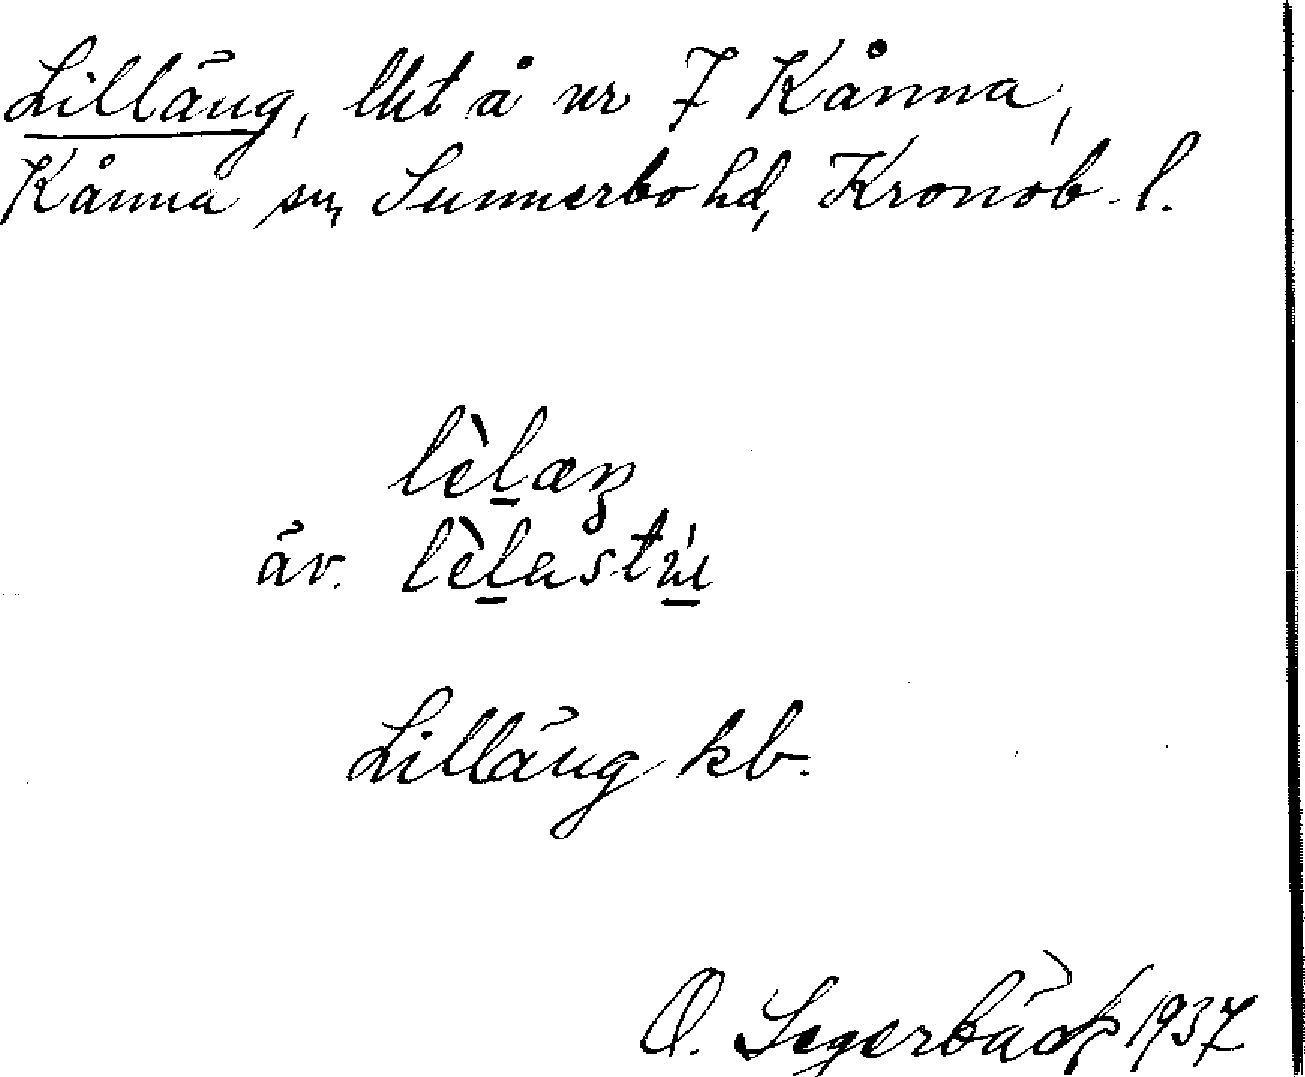 Lilläng, lht å nr 7 Kånna,
Kånna sn, Sunnerbo hd, Kronob. l.
lèlæŋ
äv.
Lilläng kb.
O. Segerbäck 1937